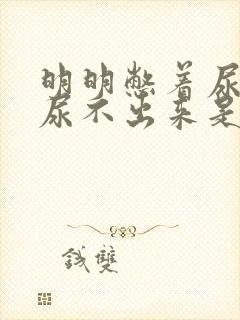 明明憋着尿
尿不出来是
钱双